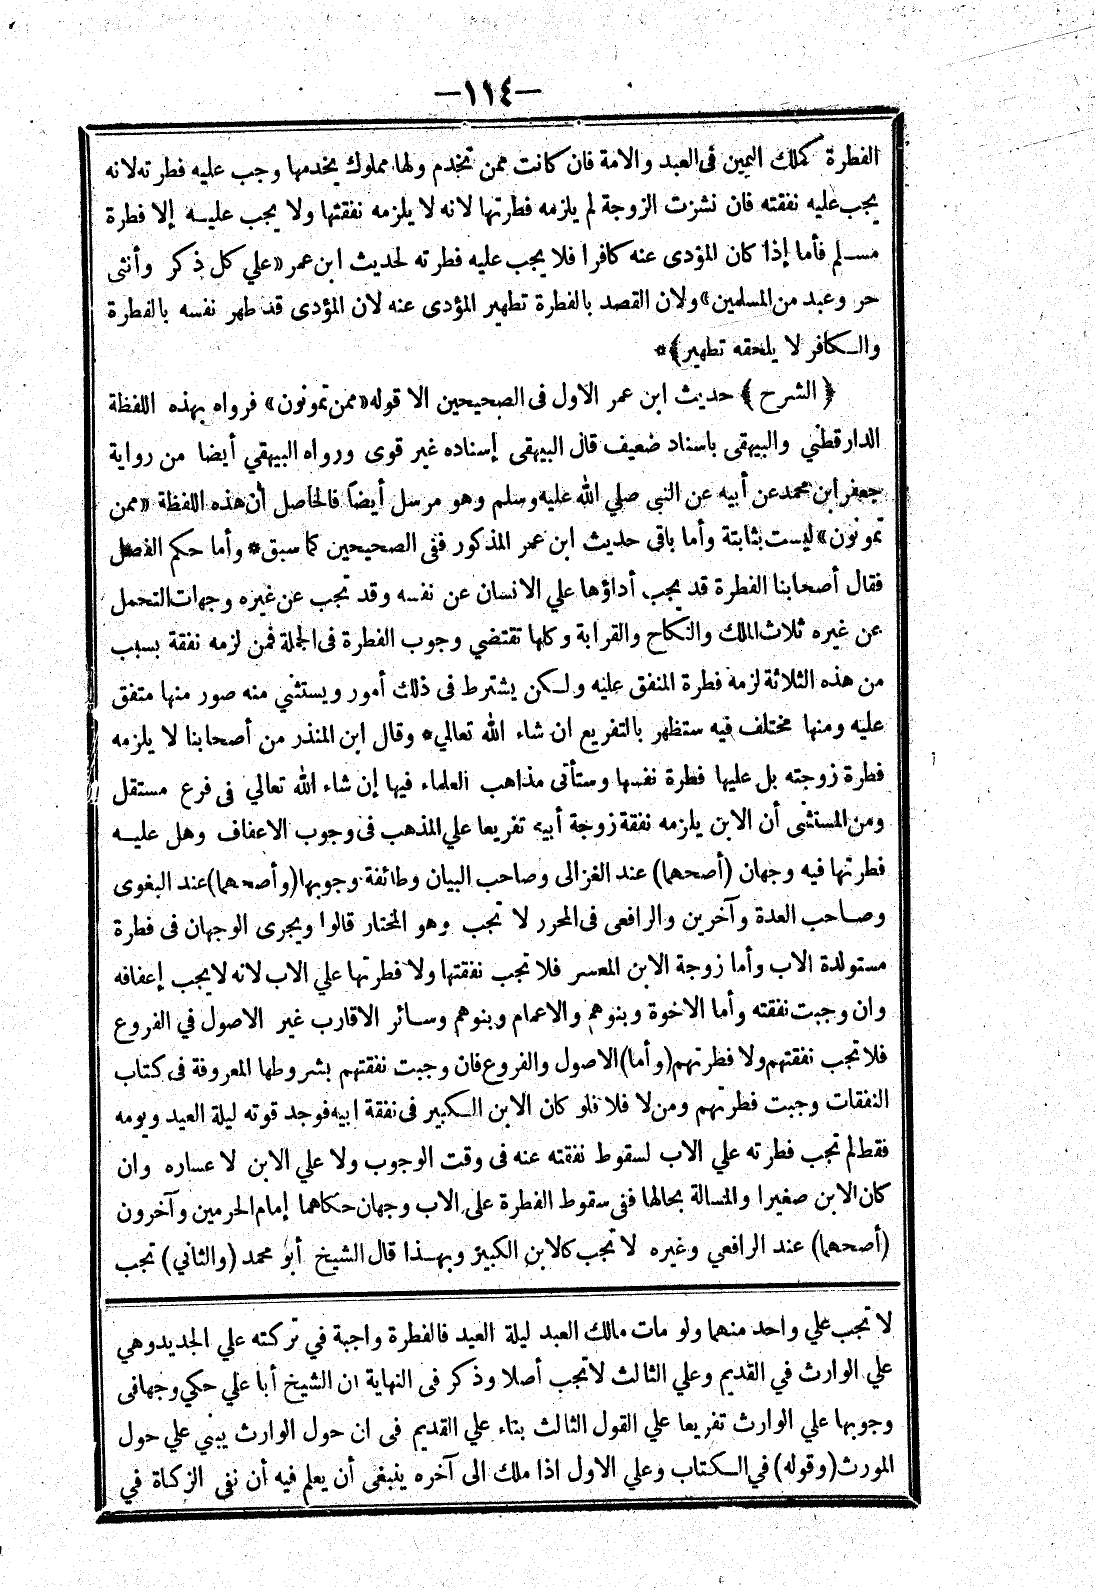 —١١٤—
الفطرة كملك اليمين فى العبد والامة فان كانت ممن تخدم ولها مملوك يخدمها وجب عليه فطرته لانه
يجب عليه نفقته فان نشزت الزوجة لم يلزمه فطرتها لانه لا يلزمه نفقتها ولا يجب عليه إلا فطرة
مسلم فأما إذا كان المؤدى عنه كافرا فلا يجب عليه فطرته لحديث ابن عمر «علي كل ذكر وأنثى
حر وعبد من المسلمين» ولان القصد بالفطرة تطهير المؤدى عنه لان المؤدى قد طهر نفسه بالفطرة
والكافر لا يلحقه تطهير﴾*
﴿الشرح﴾ حديث ابن عمر الاول فى الصحيحين الا قوله «ممن تمونون» فرواه بهذه اللفظة
الدارقطني والبيهقى باسناد ضعيف قال البيهقى إسناده غير قوى ورواه البيهقي أيضا من رواية
جعفر ابن محمد عن أبيه عن النبى صلي الله عليه وسلم وهو مرسل أيضا فالحاصل أن هذه اللفظة «ممن
تمونون» ليست بثابتة وأما باقى حديث ابن عمر المذكور ففى الصحيحين كما سبق* وأما حكم الفصل
فقال أصحابنا الفطرة قد يجب أداؤها علي الانسان عن نفسه وقد تجب عن غيره وجهات التحمل
عن غيره ثلاث الملك والنكاح والقرابة وكلها تقتضي وجوب الفطرة فى الجملة فمن لزمه نفقة بسبب
من هذه الثلاثة لزمه فطرة المنفق عليه ولكن يشترط فى ذلك أمور ويستثني منه صور منها متفق
عليه ومنها مختلف فيه ستظهر بالتفريع ان شاء الله تعالي* وقال ابن المنذر من أصحابنا لا يلزمه
فطرة زوجته بل عليها فطرة نفسها وستأتى مذاهب العلماء فيها إن شاء الله تعالي فى فرع مستقل
ومن المستثنى أن الابن يلزمه نفقة زوجة أبيه تفريعا علي المذهب فى وجوب الاعفاف وهل عليه
فطرتها فيه وجهان (أصحهما) عند الغزالى وصاحب البيان وطائفة وجوبها (وأصحهما) عند البغوى
وصاحب العدة وآخرين والرافعى فى المحرر لا تجب وهو المختار قالوا ويجرى الوجهان فى فطرة
مستولدة الاب وأما زوجة الابن المعسر فلا تجب نفقتها ولا فطرتها علي الاب لانه لا يجب إعفافه
وان وجبت نفقته وأما الاخوة وبنوهم والاعمام وبنوهم وسائر الاقارب غير الاصول في الفروع
فلا تجب نفقتهم ولا فطرتهم (وأما) الاصول والفروع فان وجبت نفقتهم بشروطها المعروفة فى كتاب
النفقات وجبت فطرتهم ومن لا فلا فلو كان الابن الكبير فى نفقة ابيه فوجد قوته ليلة العيد ويومه
فقط لم تجب فطرته علي الاب لسقوط نفقته عنه فى وقت الوجوب ولا علي الابن لاعساره وان
كان الابن صغيرا والمسالة بحالها ففى سقوط الفطرة على الاب وجهان حكاهما إمام الحرمين وآخرون
(أصحهما) عند الرافعي وغيره لا تجب كالابن الكبير وبهذا قال الشيخ أبو محمد (والثاني) تجب
لا تجب علي واحد منهما ولو مات مالك العبد ليلة العيد فالفطرة واجبة في تركته علي الجديد وهي
علي الوارث في القديم وعلي الثالث لا تجب أصلا وذكر فى النهاية ان الشيخ أبا علي حكي وجها فى
وجوبها علي الوارث تفريعا علي القول الثالث بناء علي القديم فى ان حول الوارث يبني علي حول
المورث (وقوله) في الكتاب وعلي الاول اذا ملك الى آخره ينبغى أن يعلم فيه أن نفى الزكاة في